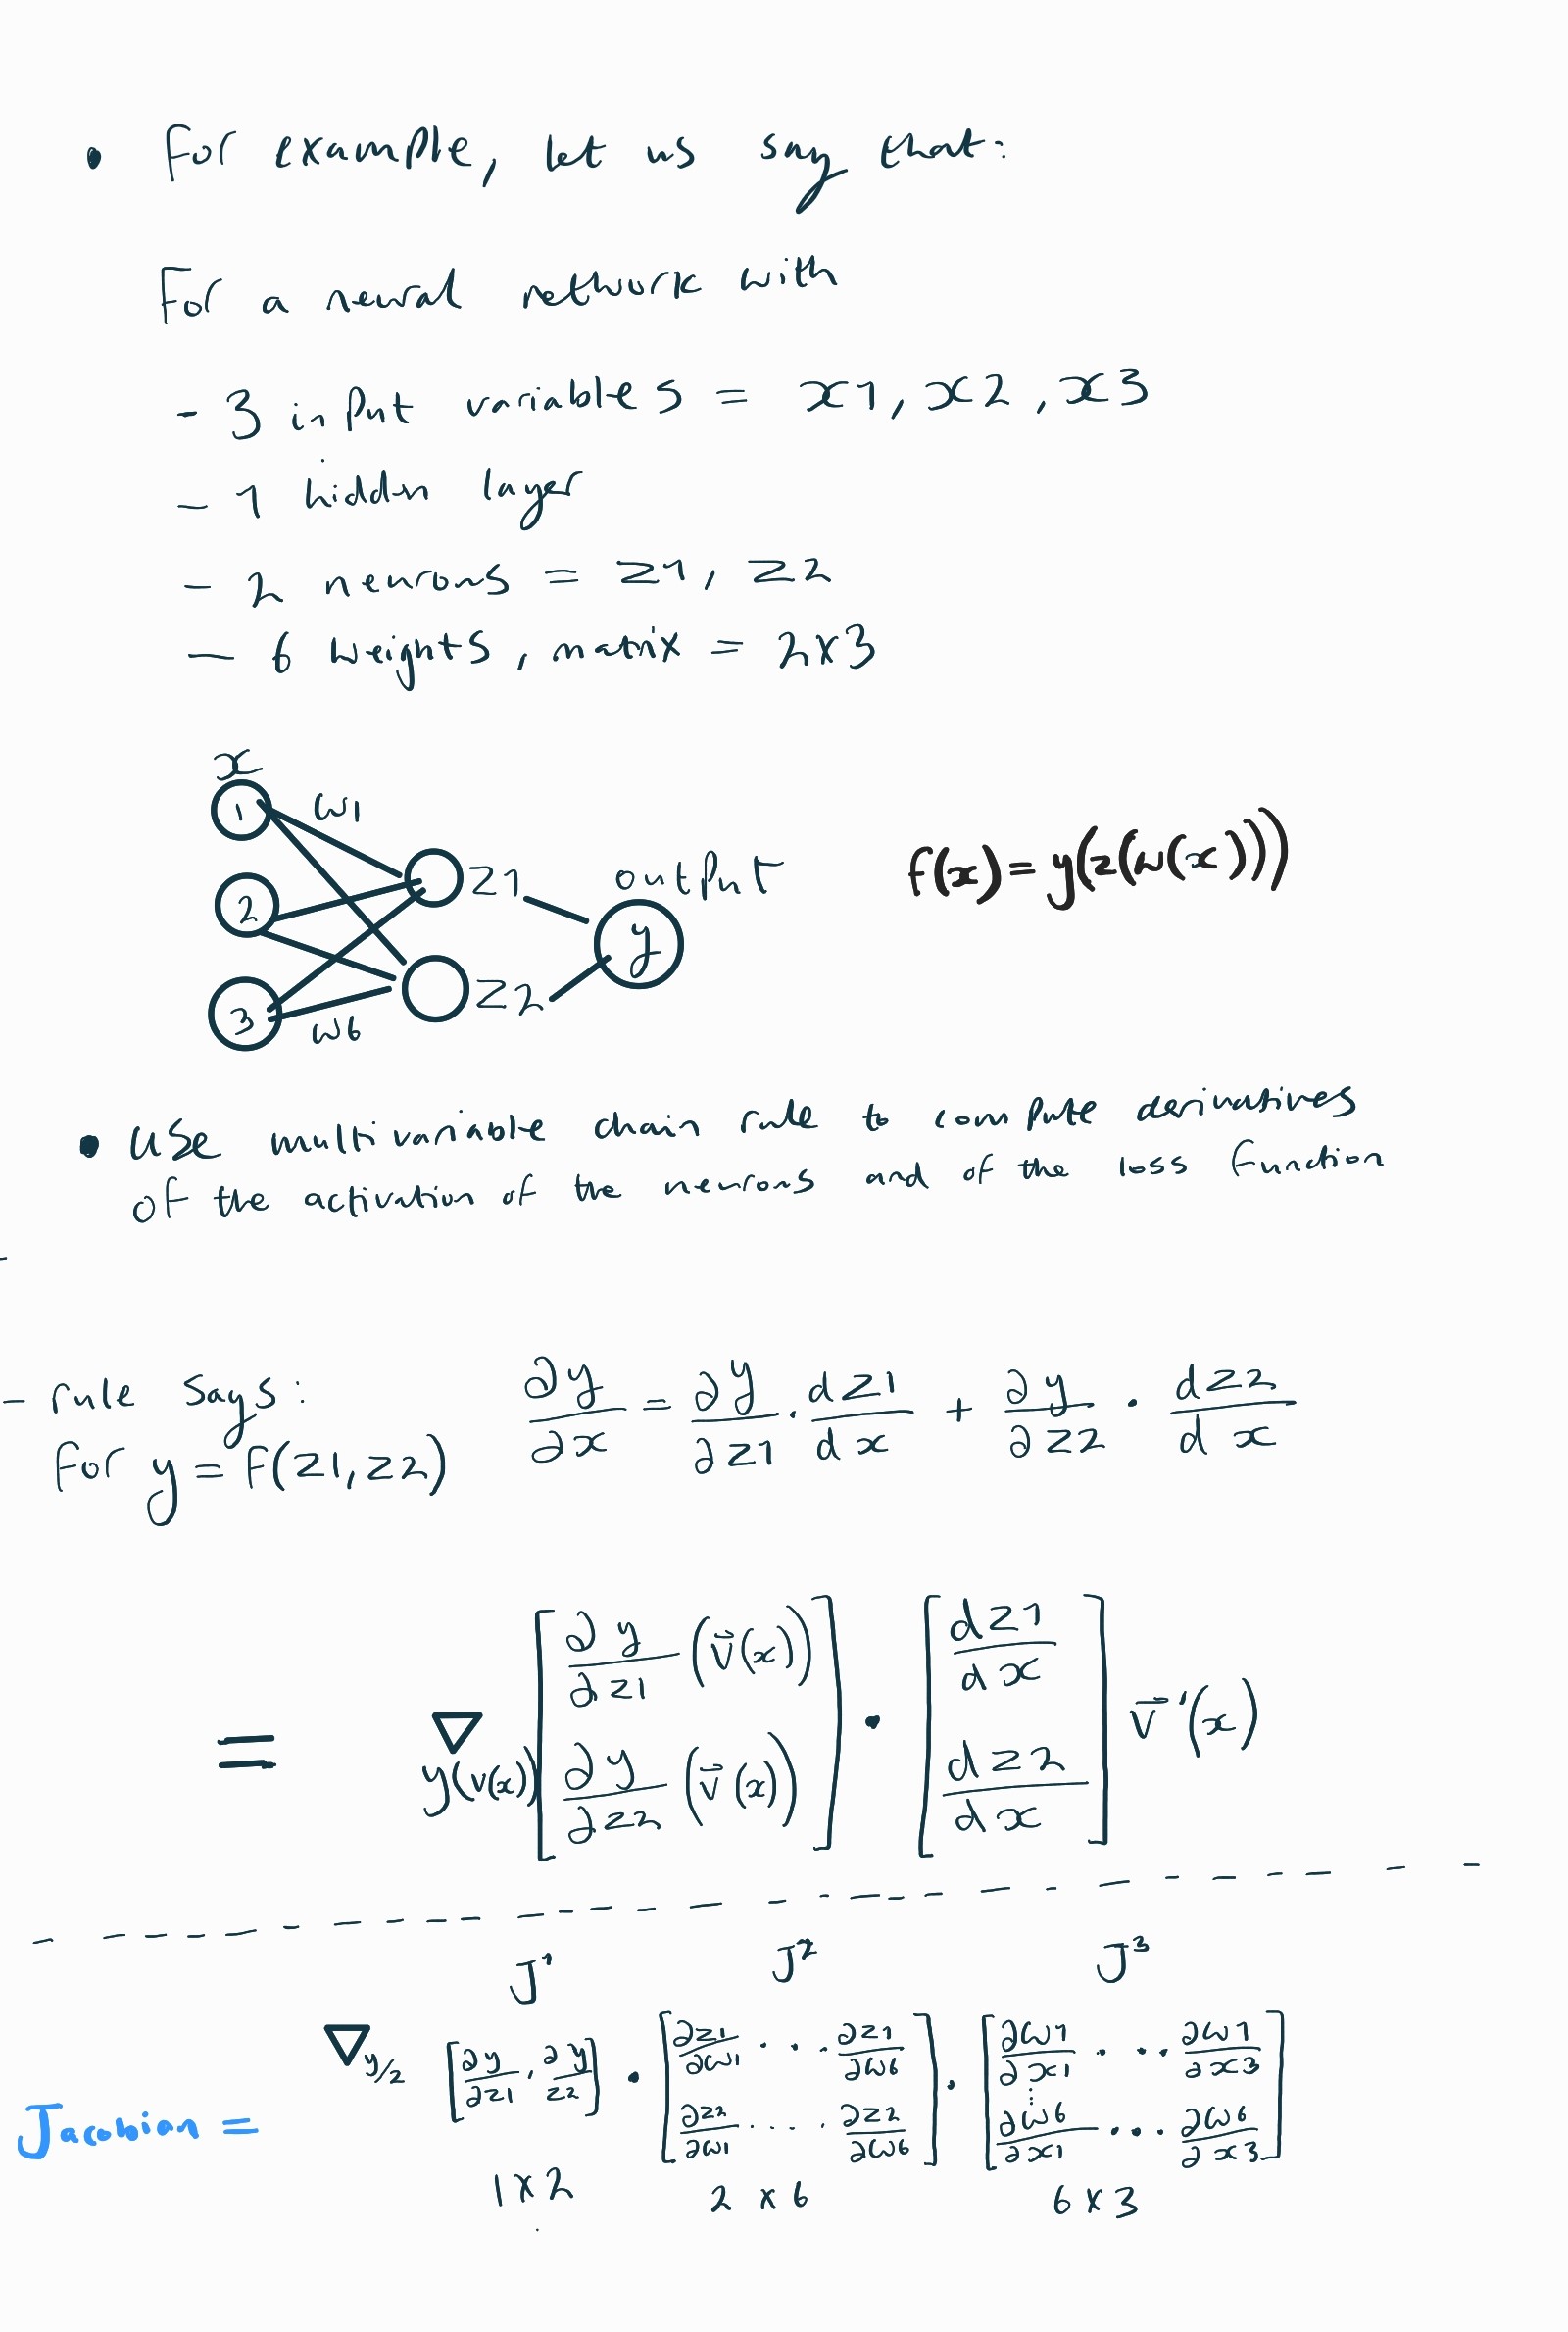 • For example, let us say that:
For a neural network with
- 3 input variables = x1, x2, x3
- 1 hidden layer
- 2 neurons = z1, z2
- 6 weights, matrix = 2x3
x
1 w1
z1 output
2
y
z2
3 w6
f(x) = y(z(w(x)))
• Use multivariable chain rule to compute derivatives
of the activation of the neurons and of the loss function
- rule says: ∂y/∂x = ∂y/∂z1 · dz1/dx + ∂y/∂z2 · dz2/dx
For y = F(z1, z2)
= ∇y(v(x)) [∂y/∂z1 (v⃗(x)) ∂y/∂z2 (v⃗(x))] · [dz1/dx dz2/dx] v⃗'(x)
J¹ J² J³
Jacobian = ∇y/z [∂y/∂z1, ∂y/z2] · [∂z1/∂w1 ... ∂z1/∂w6 ∂z2/∂w1 ..... ∂z2/∂w6] · [∂w1/∂x1 ... ∂w1/∂x3 ⋮ ∂w6/∂x1 ... ∂w6/∂x3]
1x2 2x6 6x3